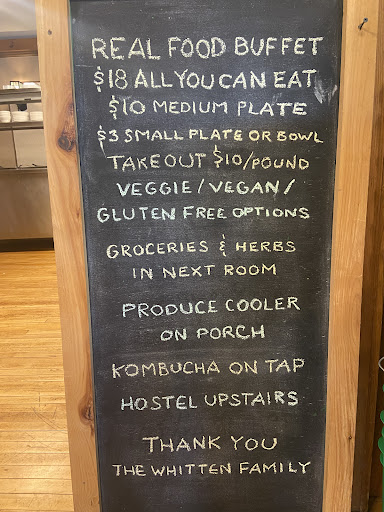 REAL FOOD BUFFET
$18 ALL YOU CAN EAT
$10 MEDIUM PLATE
$3 SMALL PLATE OR BOWL
TAKEOUT $10/POUND
VEGGIE/VEGAN/
GLUTEN FREE OPTIONS
GROCERIES & HERBS
IN NEXT ROOM
PRODUCE COOLER
ON PORCH
KOMBUCHA ON TAP
HOSTEL UPSTAIRS
THANK YOU
THE WHITTEN FAMILY